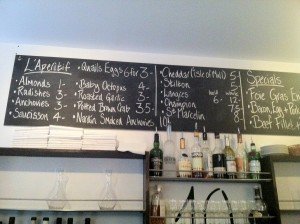 L'Aperitif
Almonds 1-
Radishes 3-
Anchovies 3-
Saucisson 4-
Quails Eggs 6 for 3-
Baby Octopus 4-
Roasted Garlic 3-
Potted Brown Crab 3.5-
Nardin Smoked Anchovies
Cheddar (Isle of Mull) 5
Stilton 5
Langres half 6- whole 12
Champion 7.5
St Marcellin 8
Specials
Foie Gras En
Bacon, Egg + 
Beef Fillet